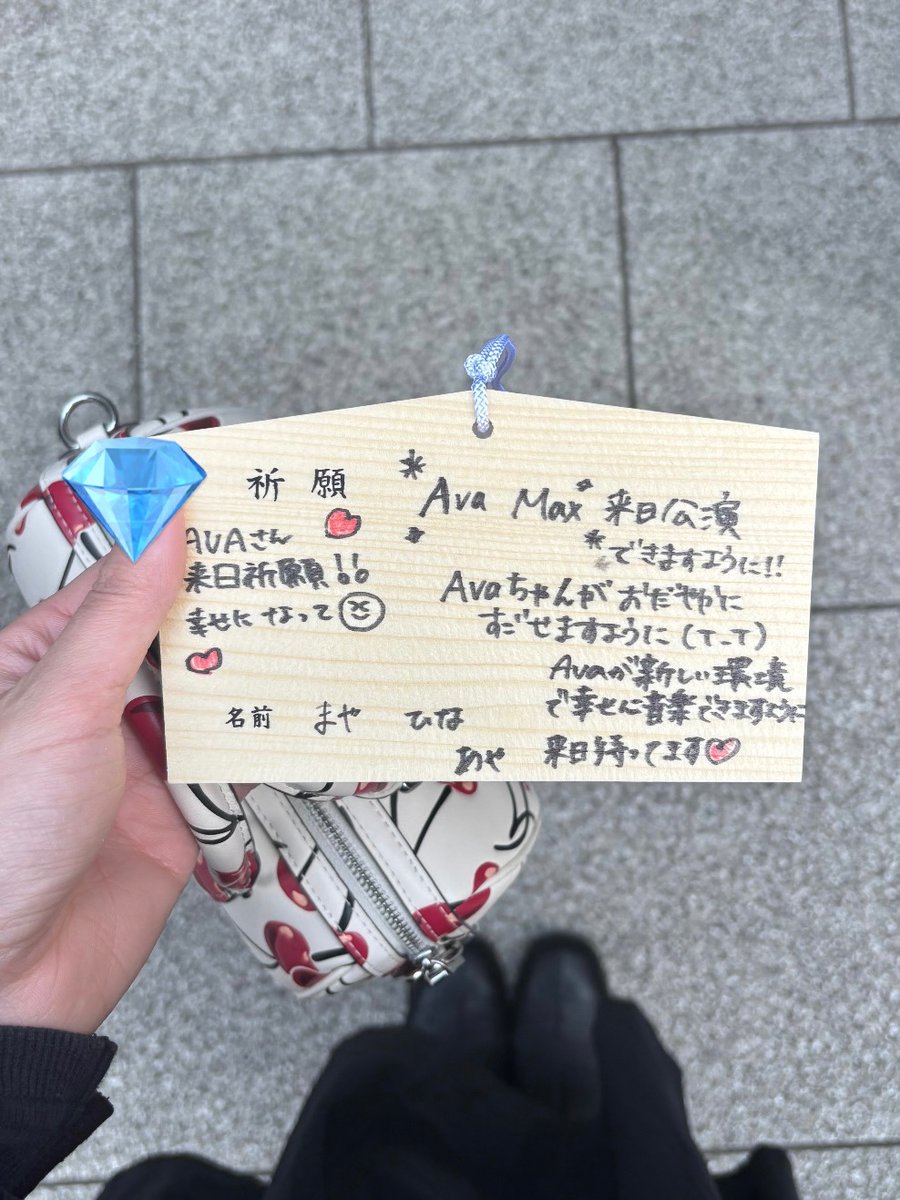 祈願
AVAさん
来日祈願!!
幸せになって
Ava Max 来日公演
できますように!!
Avaちゃんが おだやかに
すごせますように(T_T)
Avaが新しい環境
で幸せに音楽できますように
来日待ってます
名前 まや ひな
あや